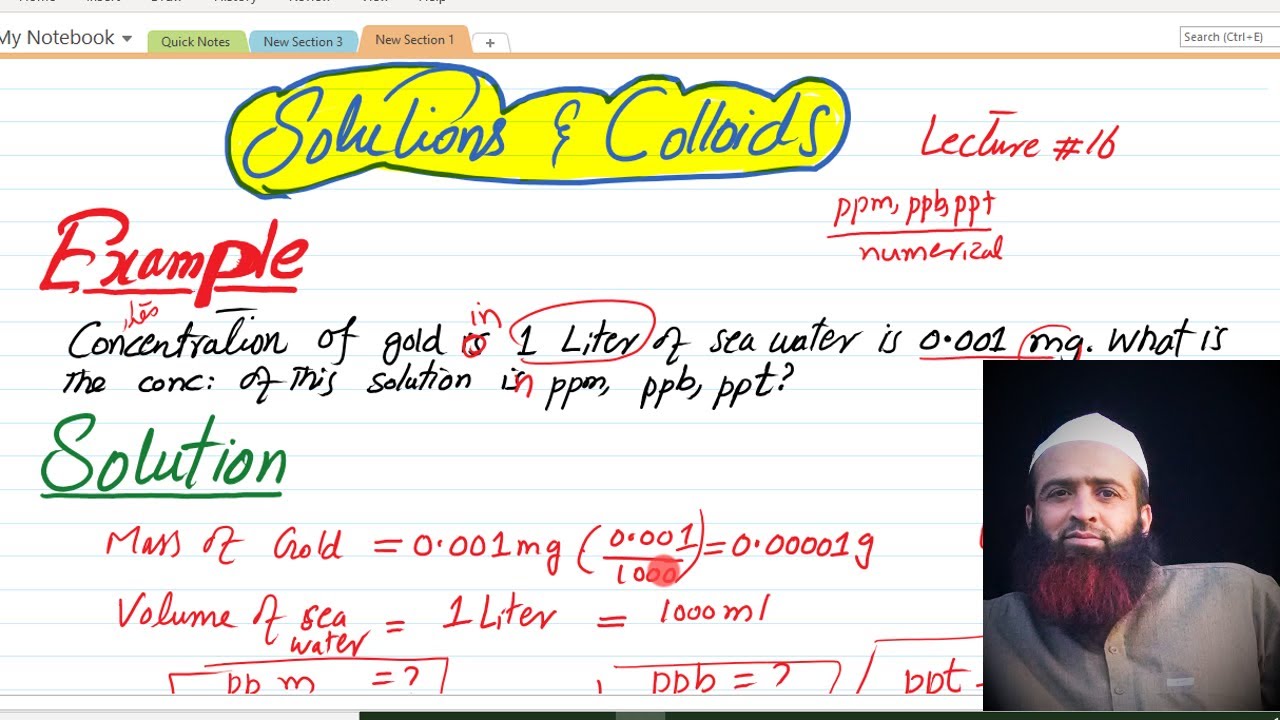 Home Insert Draw History Review View Help
My Notebook Quick Notes New Section 3 New Section 1 +
Search (Ctrl+E)
Solutions & Colloids
Lecture #16
ppm, ppb, ppt
numerical
Example
in
Concentration of gold is 1 Liter of sea water is 0.001 mg. What is
The conc: of This solution in ppm, ppb, ppt?
Solution
Mass of Gold = 0.001mg (0.001/1000) = 0.00001g
Volume of sea water = 1 Liter = 1000 ml
ppm = ?
ppb = ?
ppt